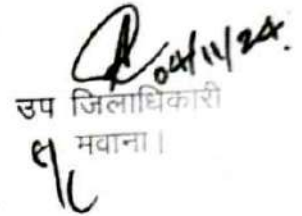 04/11/24.
उप जिलाधिकारी
मवाना।